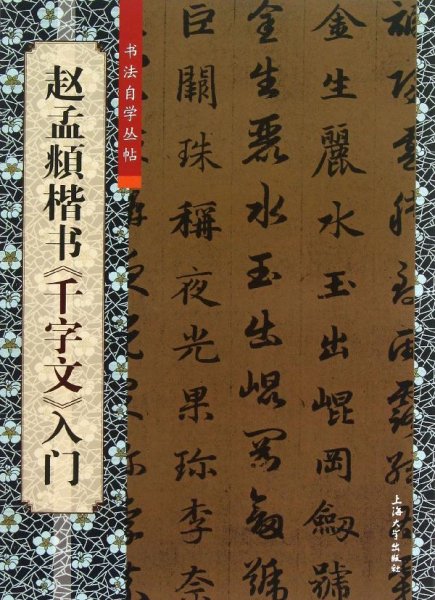 赵孟頫楷书《千字文》入门
书法自学丛帖
金生麗水玉出崐岡劒號
金生麗水玉出崐岡劒號
巨闕珠稱夜光果珍李奈
上海大学出版社